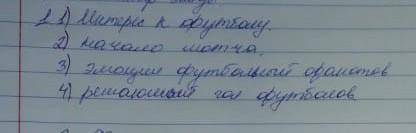 1 1) Интерес к футболу.
2) начало матча.
3) эмоции футбольный фанатов
4) решающий гол футболов